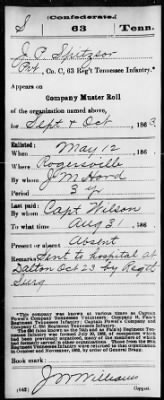 (Confederate.)
S 63 Tenn.
J. P. Spitzser
Pvt, Co. C, 63 Reg't Tennessee Infantry.*
Appears on
Company Muster Roll
of the organization named above,
for Sept & Oct, 1863.
Enlisted:
When May 12, 186
Where Rogersville
By whom J M Hord
Period 3 yr
Last paid:
By whom Capt Wilson
To what time Aug 31, 186
Present or absent Absent
Remarks: Sent to hospital at
Dalton Oct 23 by Regt
Surg
*This company was known at various times as Captain
Book mark:
J W Williams
(642) Copyist.